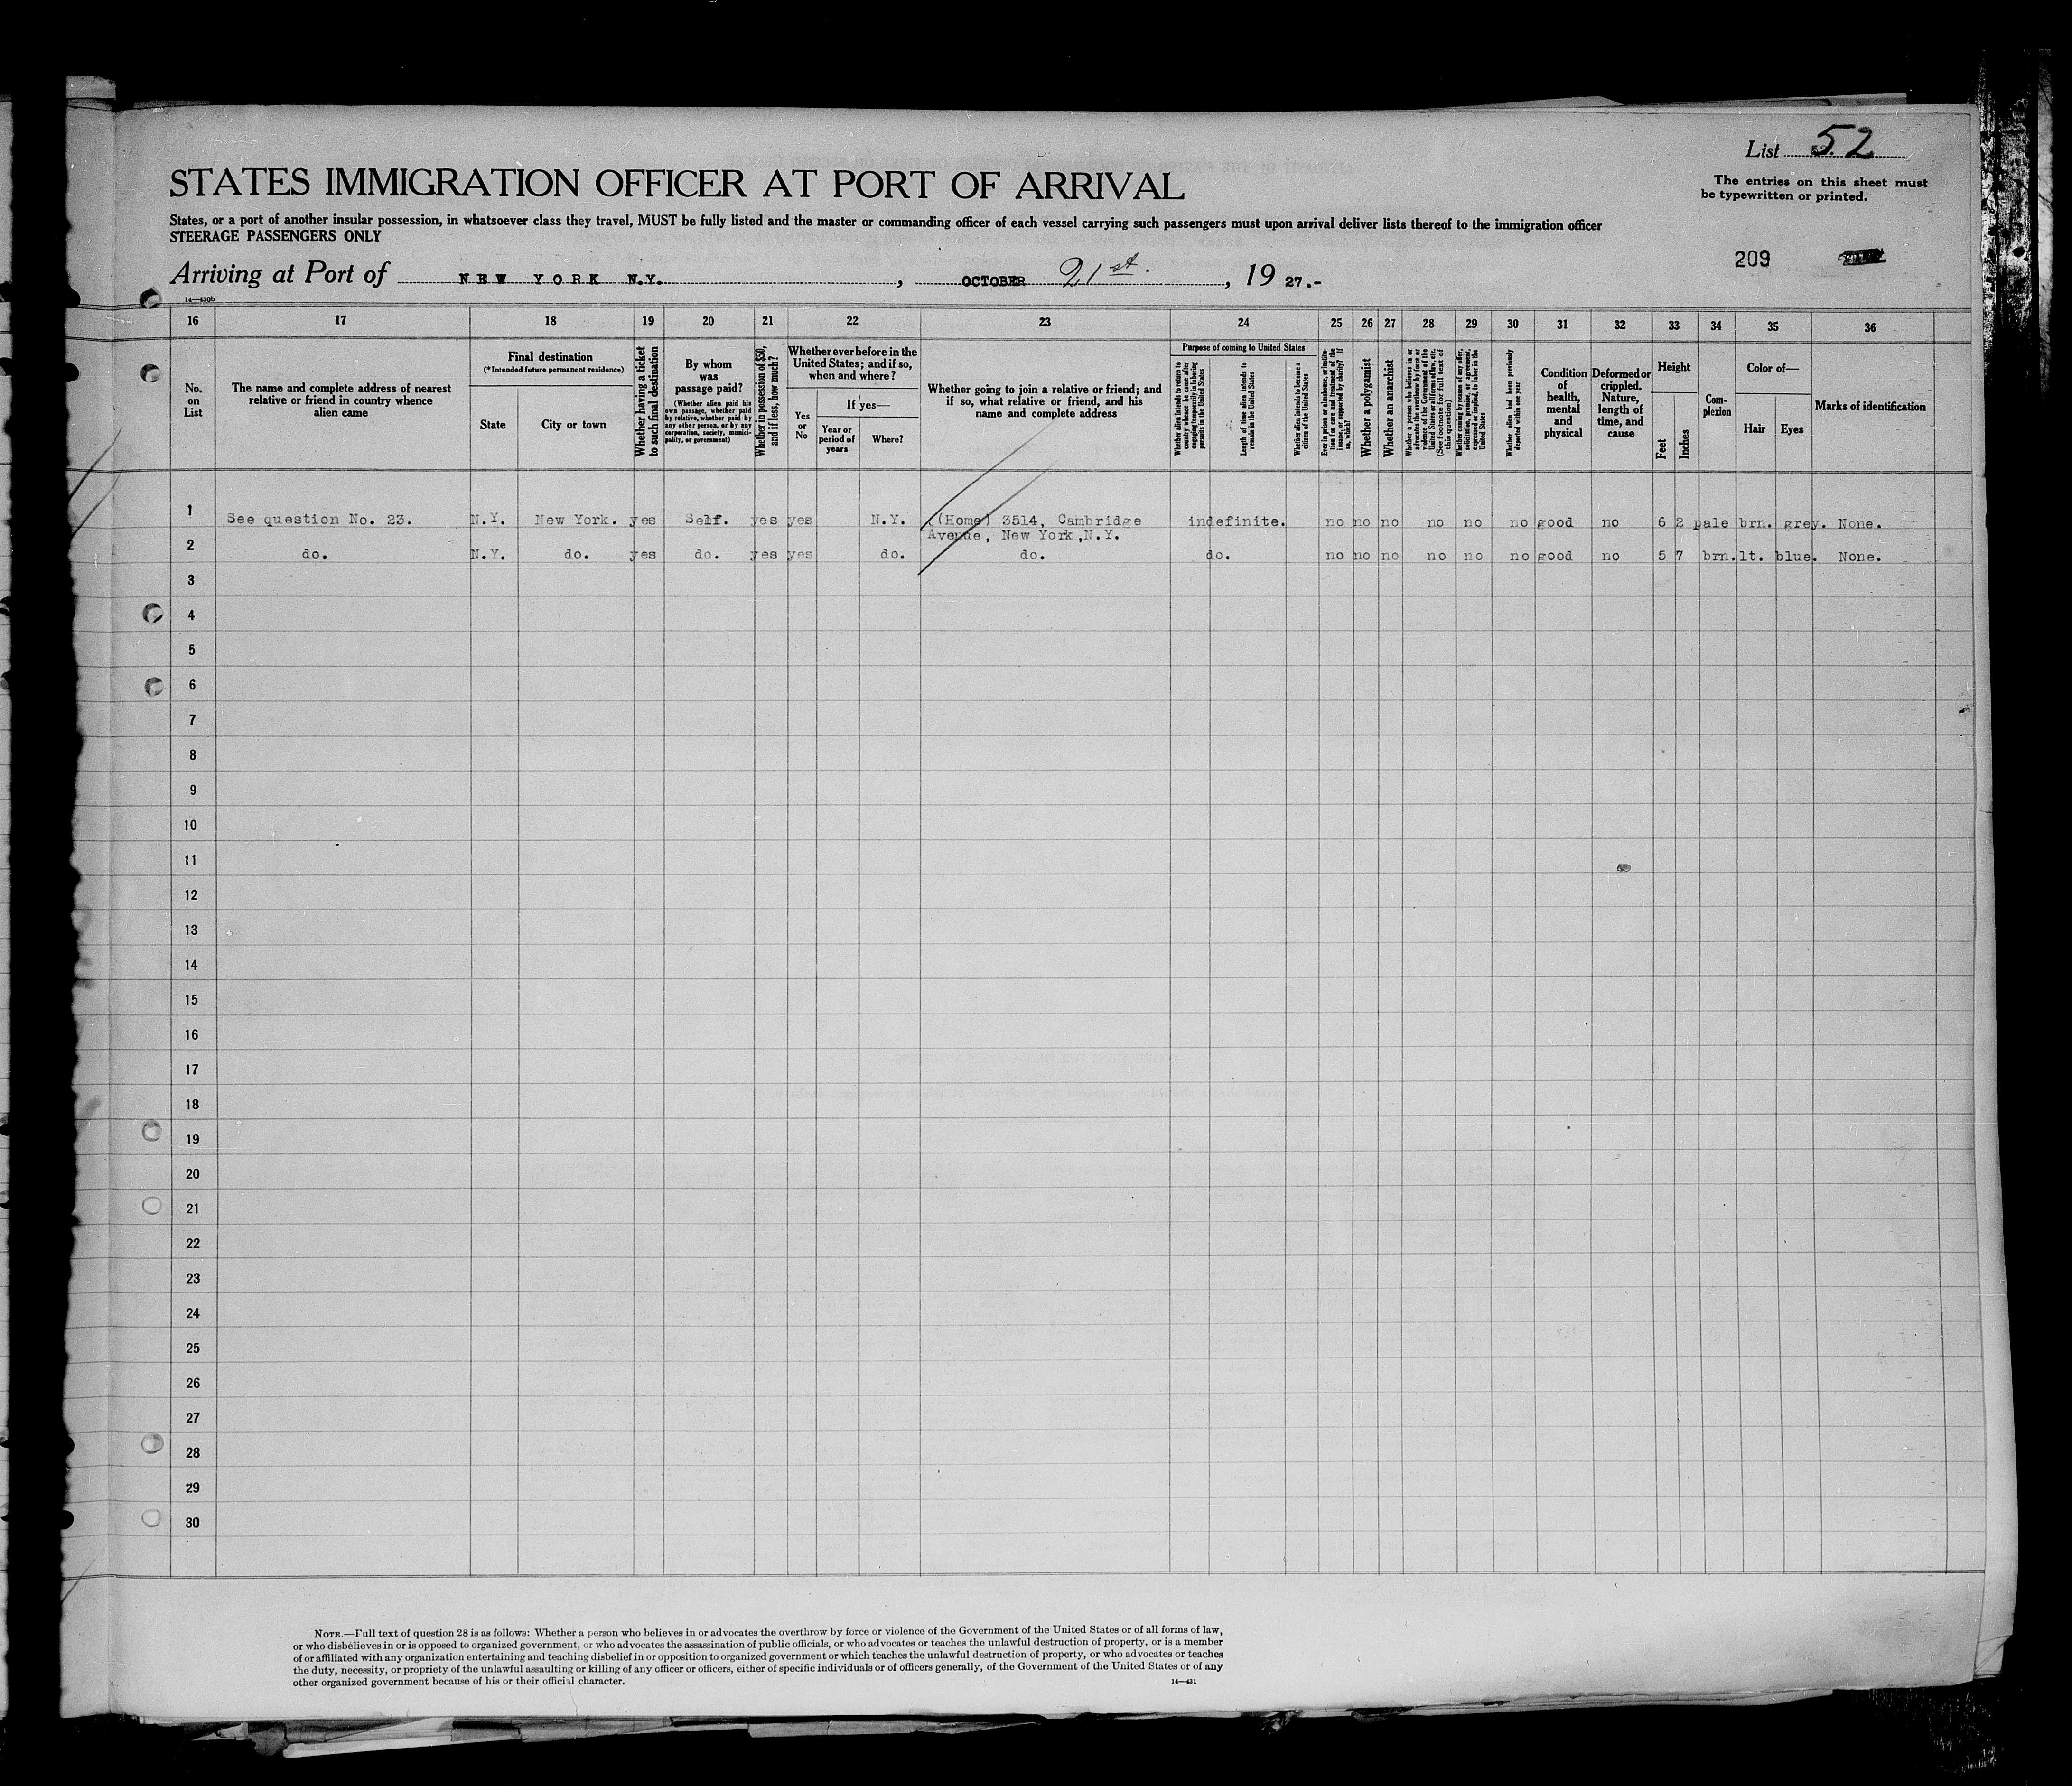 List 52
The entries on this sheet must
be typewritten or printed.
STATES IMMIGRATION OFFICER AT PORT OF ARRIVAL
States, or a port of another insular possession, in whatsoever class they travel, MUST be fully listed and the master or commanding officer of each vessel carrying such passengers must upon arrival deliver lists thereof to the immigration officer
STEERAGE PASSENGERS ONLY
209
Arriving at Port of NEW YORK N.Y. , OCTOBER 21st. , 19 27.-
14—430b
16 17 18 19 20 21 22 23 24 25 26 27 28 29 30 31 32 33 34 35 36
No.
on
List
The name and complete address of nearest
relative or friend in country whence
alien came
Final destination
(*Intended future permanent residence)
State
City or town
Whether having a ticket
to such final destination
By whom
was
passage paid?
(Whether alien paid his
own passage, whether paid
by relative, whether paid by
any other person, or by any
corporation, society, munici-
pality, or government)
Whether in possession of $50,
and if less, how much?
Whether ever before in the
United States; and if so,
when and where?
Yes
or
No
If yes—
Year or
period of
years
Where?
Whether going to join a relative or friend; and
if so, what relative or friend, and his
name and complete address
Purpose of coming to United States
Whether alien intends to return to
country whence he came after
engaging temporarily in laboring
pursuits in the United States
Length of time alien intends to
remain in the United States
Whether alien intends to become a
citizen of the United States
Ever in prison or almshouse, or institu-
tion for care and treatment of the
insane, or supported by charity? If
so, which?
Whether a polygamist
Whether an anarchist
Whether a person who believes in or
advocates the overthrow by force or
violence of the Government of the
United States or all forms of law, etc.
(See footnote for full text of
this question)
Whether coming by reason of any offer,
solicitation, promise, or agreement,
expressed or implied, to labor in the
United States
Whether alien had been previously
deported within one year
Condition
of
health,
mental
and
physical
Deformed or
crippled.
Nature,
length of
time, and
cause
Height
Feet
Inches
Com-
plexion
Color of—
Hair
Eyes
Marks of identification
1 See question No. 23. N.Y. New York. yes Self. yes yes N.Y. (Home) 3514, Cambridge indefinite. no no no no no no good no 6 2 pale brn. grey. None.
Avenue, New York,N.Y.
2 do. N.Y. do. yes do. yes yes do. do. do. no no no no no no good no 5 7 brn. lt. blue. None.
3
4
5
6
7
8
9
10
11
12
13
14
15
16
17
18
19
20
21
22
23
24
25
26
27
28
29
30
NOTE.—Full text of question 28 is as follows: Whether a person who believes in or advocates the overthrow by force or violence of the Government of the United States or of all forms of law,
or who disbelieves in or is opposed to organized government, or who advocates the assassination of public officials, or who advocates or teaches the unlawful destruction of property, or is a member
of or affiliated with any organization entertaining and teaching disbelief in or opposition to organized government or which teaches the unlawful destruction of property, or who advocates or teaches
the duty, necessity, or propriety of the unlawful assaulting or killing of any officer or officers, either of specific individuals or of officers generally, of the Government of the United States or of any
other organized government because of his or their official character.
14—431